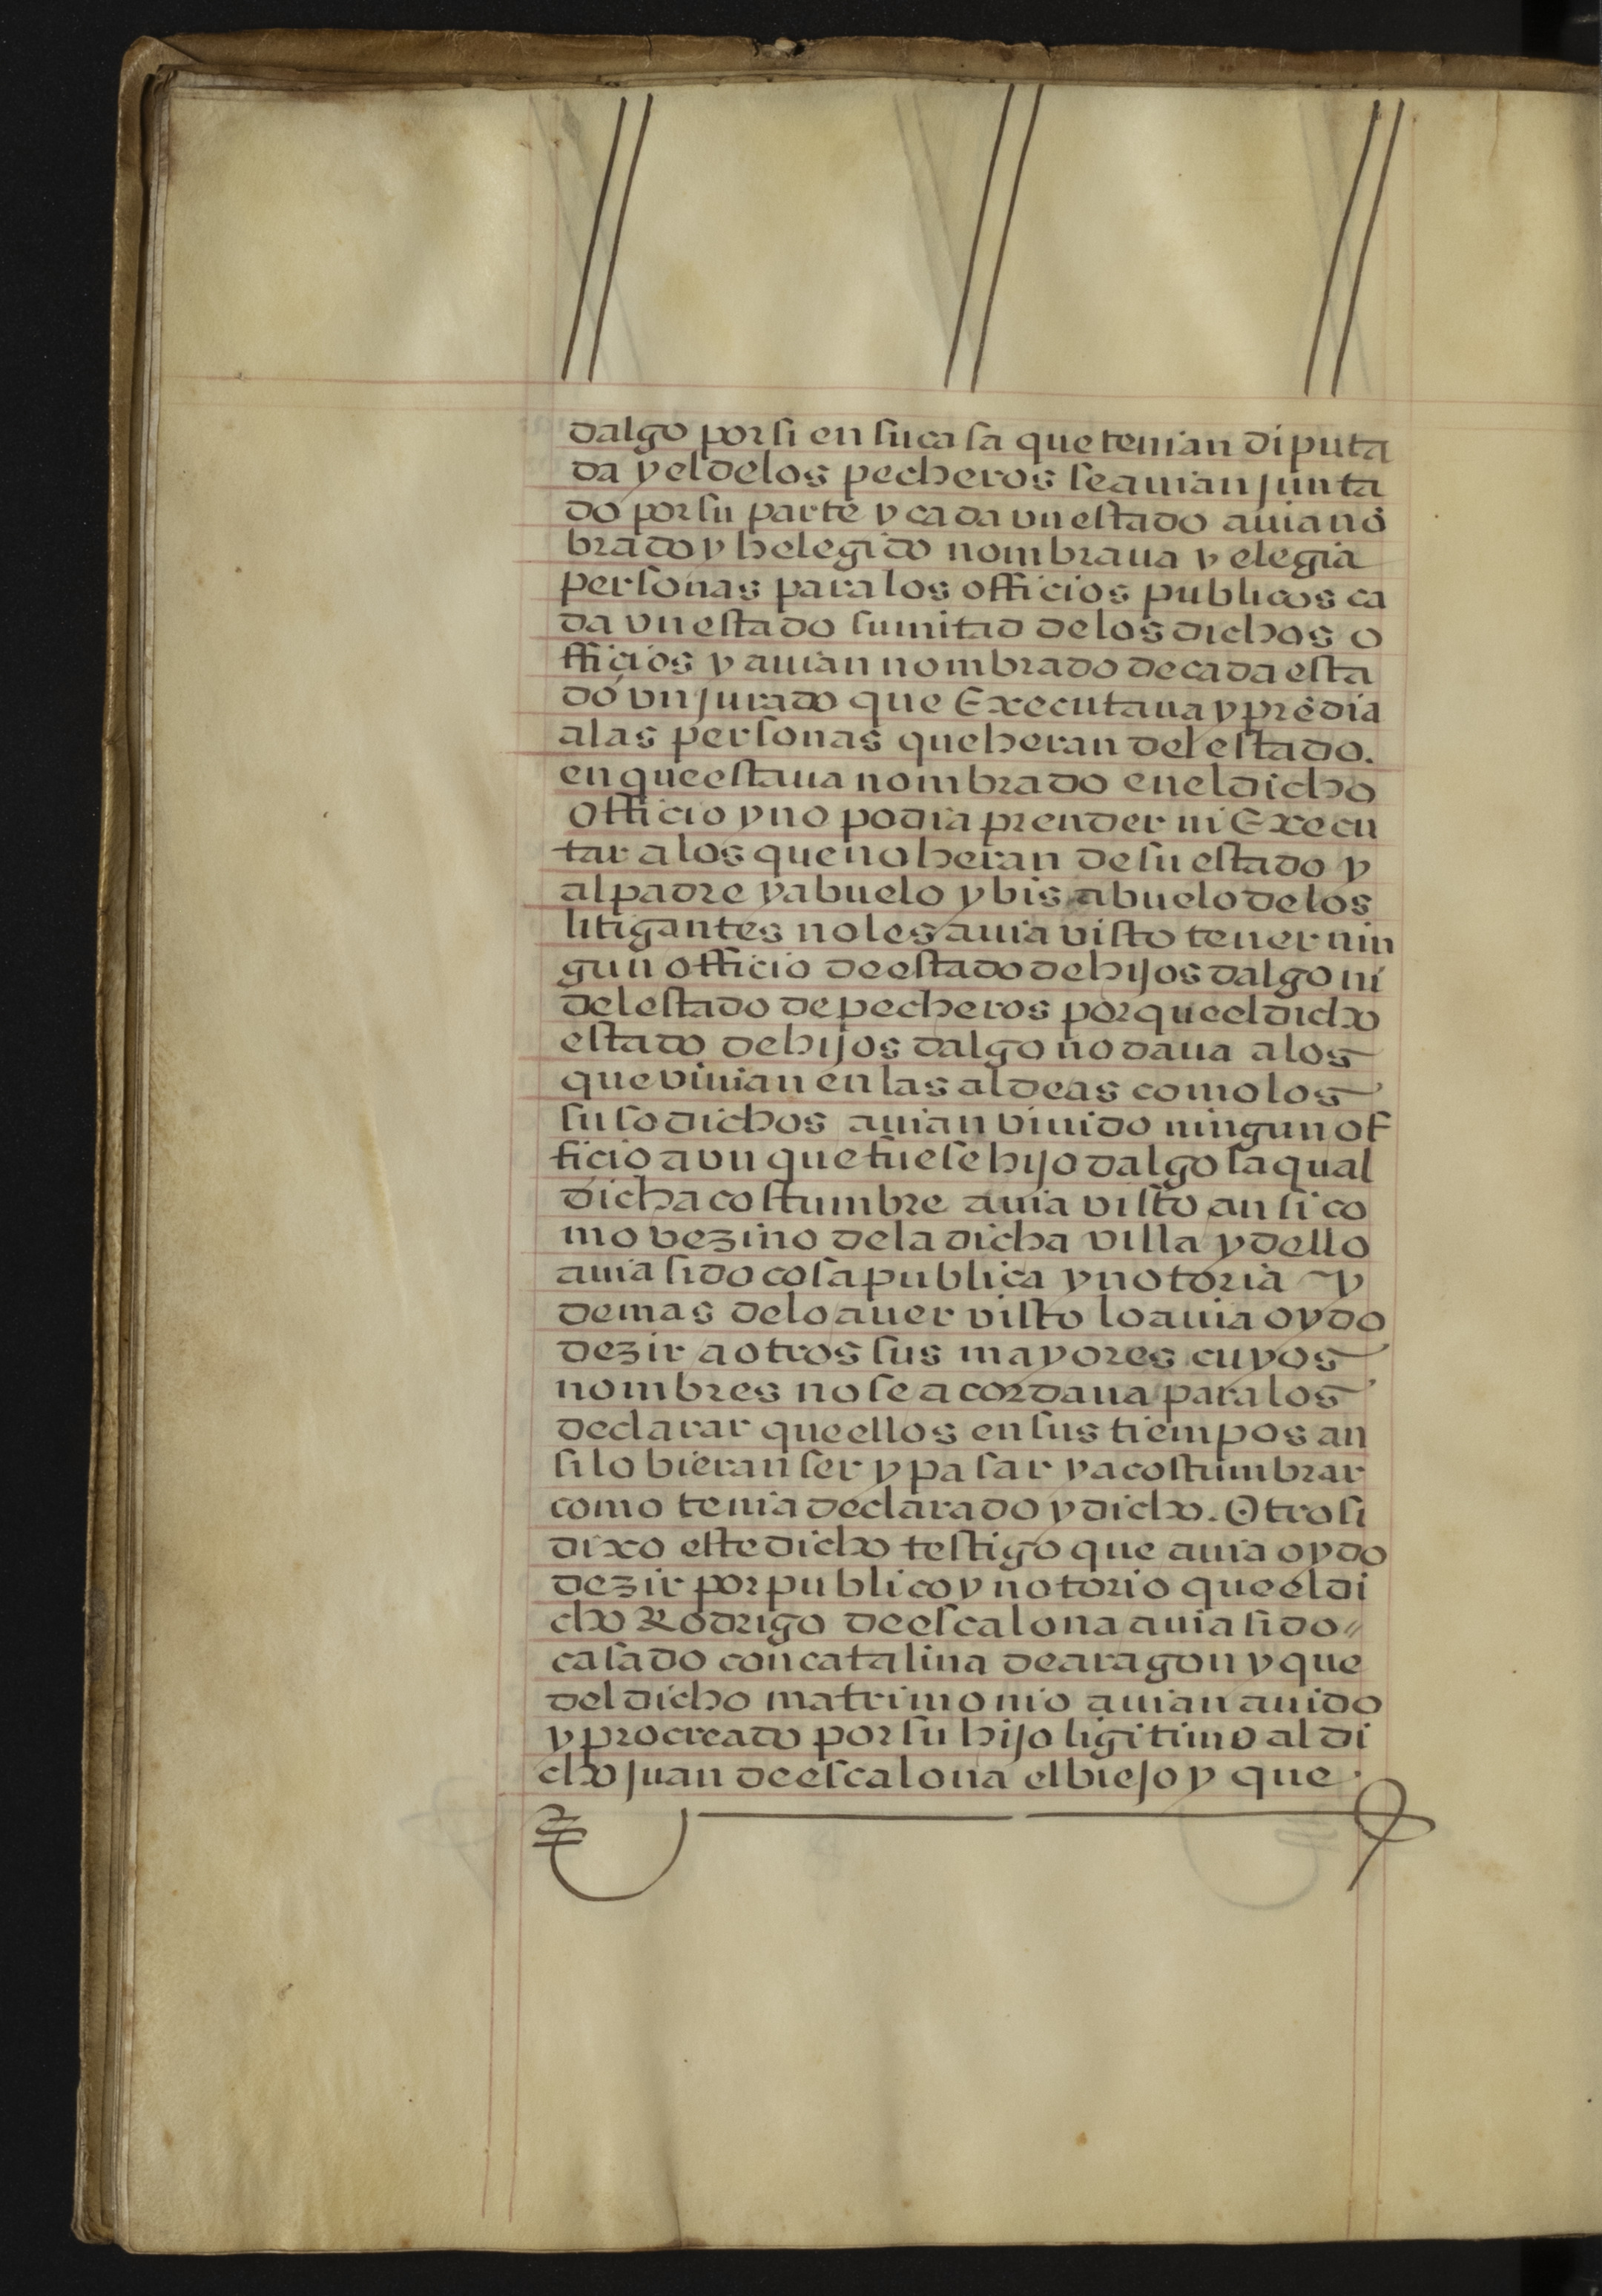 dalgo por si en su casa que tenian diputa
da y el de los pecheros se auian junta
do por su parte y cada vn estado auia nõ
brado y helegido nombraua y elegia
personas para los officios publicos ca
da vn estado su mitad de los dichos o
fficios y auian nombrado de cada esta
do vn jurado que Executaua y prẽdia
a las personas que heran del estado.
en que estaua nombrado en el dicho
officio y no podia prender ni Execu
tar a los que no heran de su estado y
al padre y abuelo y bisabuelo de los
litigantes no les auia visto tener nin
gun officio de estado de hijos dalgo ni
del estado de pecheros porque el dicho
estado de hijos dalgo no daua a los
que viuian en las aldeas como los
susodichos auian viuido ningun of
ficio avn que fuese hijo dalgo la qual
dicha costumbre auia visto ansi co
mo vezino de la dicha villa y dello
auia sido cosa publica y notoria y
demas de lo auer visto lo auia oydo
dezir a otros sus mayores cuyos
nombres no se acordaua para los
declarar que ellos en sus tiempos an
si lo bieran ser y pasar y acostumbrar
como tenia declarado y dicho. Otrosi
dixo este dicho testigo que auia oydo
dezir por publico y notorio que el di
cho Rodrigo de escalona auia sido //
casado con catalina de aragon y que
del dicho matrimonio auian auido
y procreado por su hijo ligitimo al di
cho juan de escalona el biejo y que